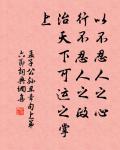 以不忍人之心
行不忍人之政
治天下可运之掌
上
孟子公孙丑章句上第
六节词典网集